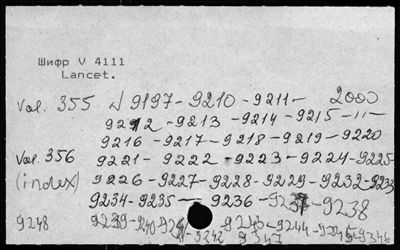 Шифр V 4111
Lancet.
Vol. 355 N 9197-9210-9211- 2000
9212-9213-9214-9215-11-
9216-9217-9218-9219-9220
Vol. 356 9221-9222-9223-9224-9225
(index) 9226-9227-9228-9229-9232-9233
9234-9235- 9236-9237-9238
9248 9239-9240-9241-9242 9243-9244-9345-9346
9347